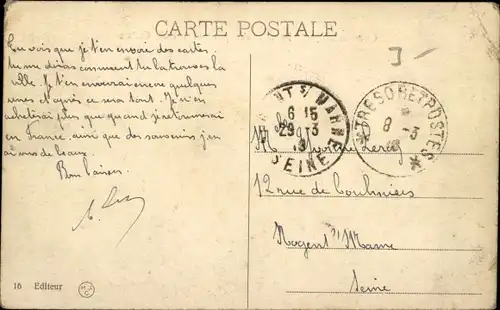 CARTE POSTALE
Tu vois que je t'en envoie des cartes.
tu me diras comment tu la trouves la
ville. Je t'en enverrai encore quelques
unes et après ce sera tout. Je n'en
achèterai plus que quand je retournerai
en France, ainsi que des souvenirs j'en
ai vus de beaux.
Bons baisers.
NT S/ MARNE
6 15
29 3
SEINE
* TRESOR ET POSTES *
8 3
M
12 rue de Coulmiers
Nogent s/ Marne
Seine
16 Editeur